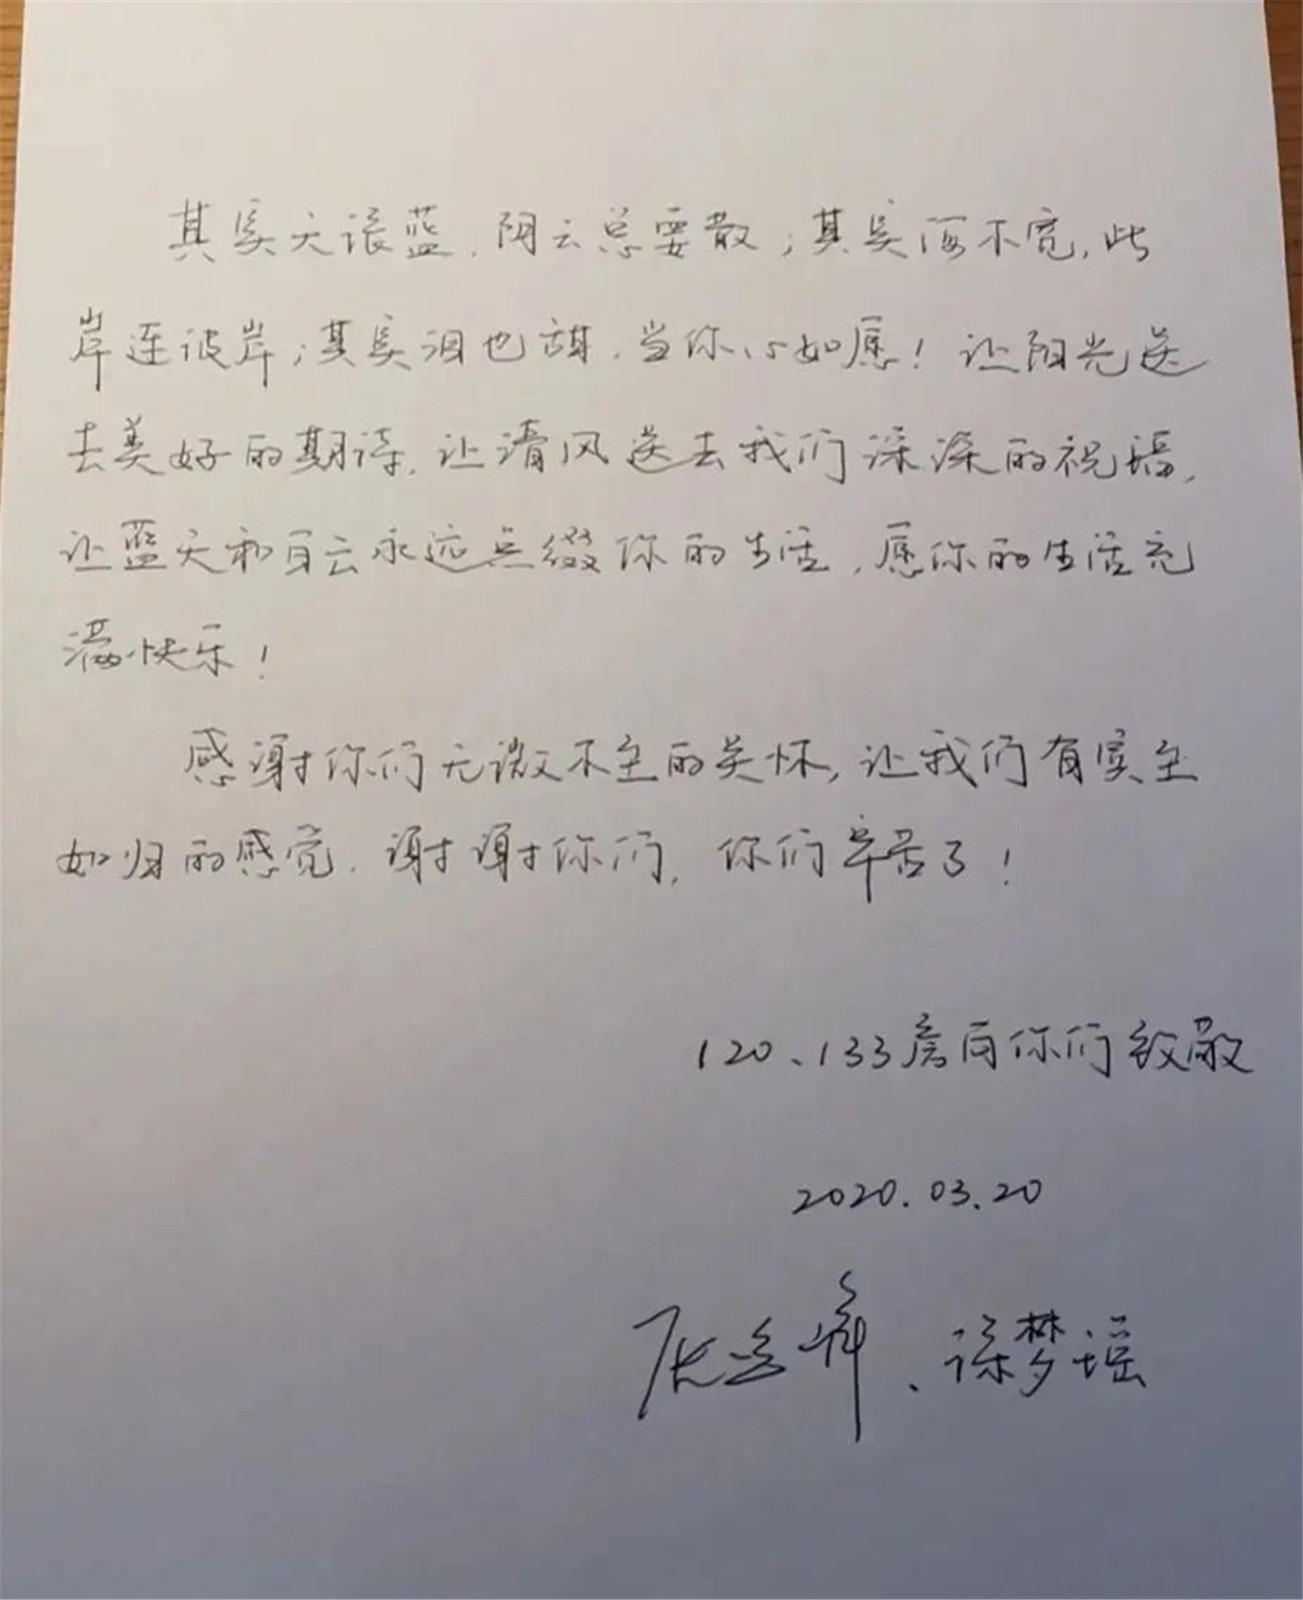 其实天很蓝，阴云总要散；其实海不宽，此
岸连彼岸；其实泪也甜，当你心如愿！让阳光送
去美好的期待，让清风送去我们深深的祝福，
让蓝天和白云永远点缀你的生活，愿你的生活充
满快乐！
感谢你们无微不至的关怀，让我们有宾至
如归的感觉。谢谢你们，你们辛苦了！
120、133房向你们致敬
2020.03.20
、徐梦瑶